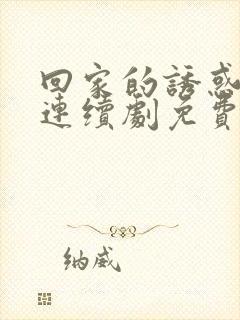 回家的誘惑
連續劇免費
纳威